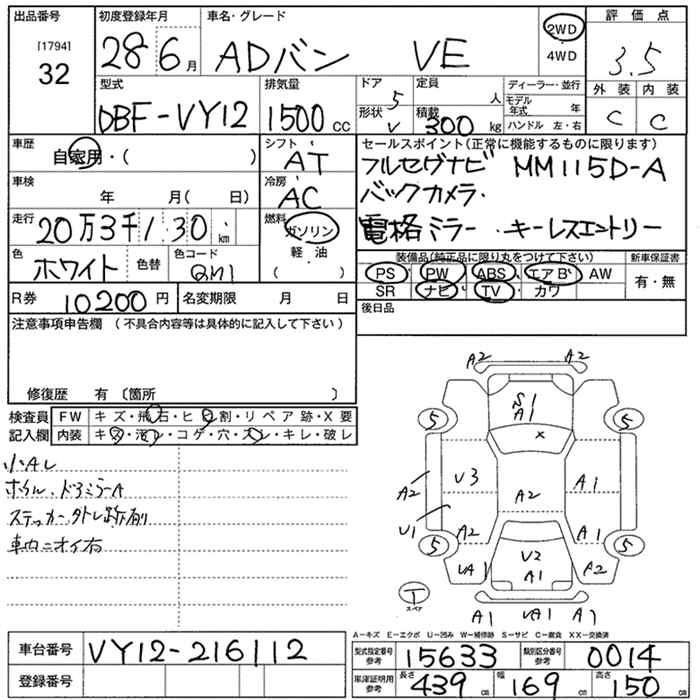 出品番号
[1794]
32
初度登録年月
28年6月
車名・グレード
ADバン VE
2WD
4WD
評価点
3.5
型式
DBF-VY12
排気量
1500cc
ドア
5
形状
V
定員
人
積載
300kg
ディーラー・並行
モデル年式 年
ハンドル 左・右
外装 内装
C C
車歴
自家用・( )
シフト
AT
車検
年 月( 日)
冷房
AC
走行
20万3千130km
燃料
ガソリン
軽・油
( )
色
ホワイト
色替
色コード
QM1
R券
10200円
名変期限 月 日
セールスポイント(正常に機能するものに限ります)
フルセグナビ MM115D-A
バックカメラ・
電格ミラー・キーレスエントリー
装備品(純正品に限り丸をつけて下さい)
PS PW ABS エアB AW
SR ナビ TV カワ
新車保証書
有・無
後日品
注意事項申告欄 (不具合内容等は具体的に記入して下さい)
修復歴 有 〔箇所 〕
検査員記入欄
FW キズ・飛石・ヒビ割・リペア跡・X要
内装 キズ・汚レ・コゲ・穴・スレ・キレ・破レ
小AU
ホイル・ドアミラーA
ステッカー・外レ跡有
車内ニオイ有
A2 A2
S1
A1
×
5 5
A2
U3
A2
A1
U1
A2 A1
5 5
UA1
U2
A1
A2
T
スペア
A1 UA1 A1
A-キズ E-エクボ U-凹み W-補修跡 S-サビ C-腐食 XX-交換済
車台番号
VY12-216112
登録番号
型式指定番号 参考
15633
類別区分番号 参考
0014
車庫証明用 参考
長さ 439cm
幅 169cm
高さ 150cm